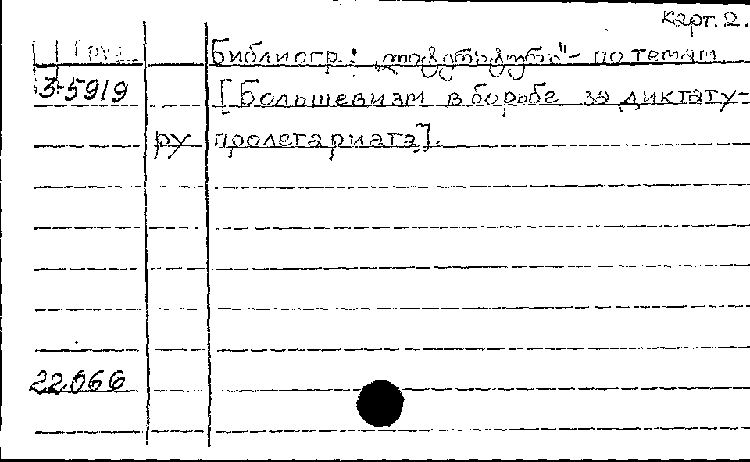 карт. 2.
Груз.
Библиогр.: - по темам
3-5919 [Большевизм в борьбе за диктату-
ру пролетариата].
22.066